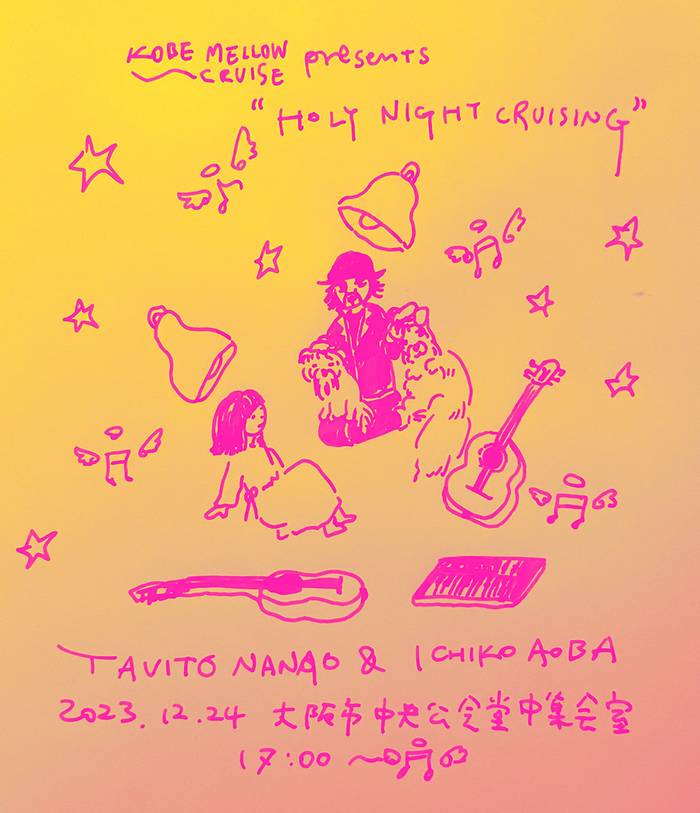 KOBE MELLOW CRUISE presents
"HOLY NIGHT CRUISING"
TAVITO NANAO & ICHIKO AOBA
2023.12.24 大阪市中央公会堂中集会室
17:00 ~